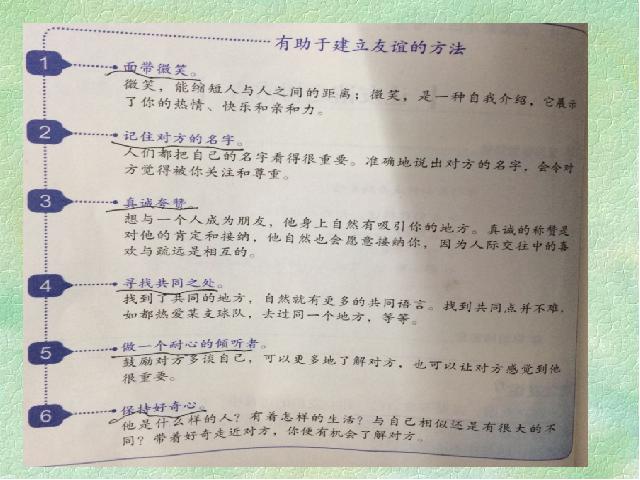 有助于建立友谊的方法
1 面带微笑。
微笑，能缩短人与人之间的距离；微笑，是一种自我介绍，它展示
了你的热情、快乐和亲和力。
2 记住对方的名字。
人们都把自己的名字看得很重要。准确地说出对方的名字，会令对
方觉得被你关注和尊重。
3 真诚夸赞。
想与一个人成为朋友，他身上自然有吸引你的地方。真诚的称赞是
对他的肯定和接纳，他自然也会愿意接纳你，因为人际交往中的喜
欢与疏远是相互的。
4 寻找共同之处。
找到了共同的地方，自然就有更多的共同语言。找到共同点并不难，
如都热爱某支球队，去过同一个地方，等等。
5 做一个耐心的倾听者。
鼓励对方多谈自己，可以更多地了解对方，也可以让对方感觉到他
很重要。
6 保持好奇心。
他是什么样的人？有着怎样的生活？与自己相似还是有很大的不
同？带着好奇走近对方，你便有机会了解对方。